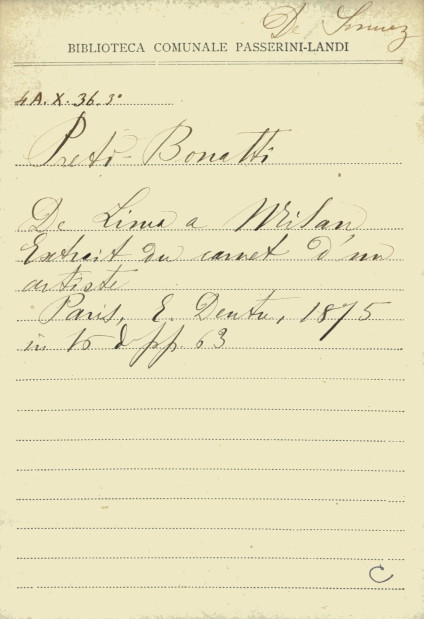 BIBLIOTECA COMUNALE PASSERINI-LANDI
4A.X.36.3°
Preti-Bonatti
De Lima a Milan
Extrait du carnet d'un
artiste
Paris, E. Dentu, 1875
in 16 d pp. 63
C